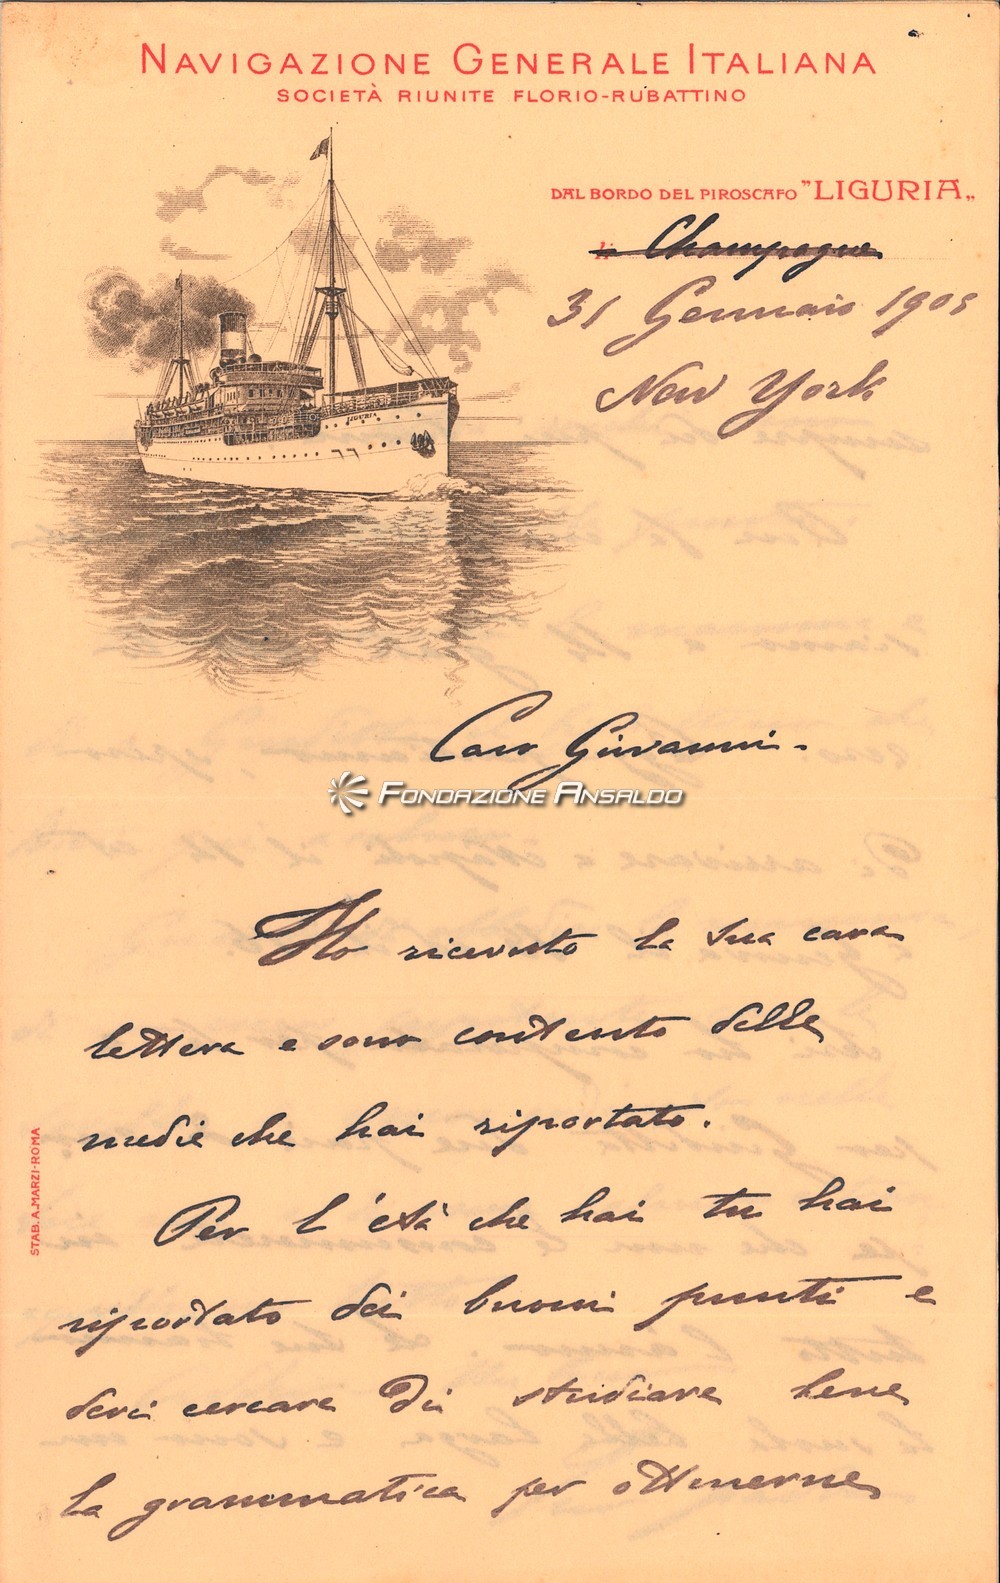 NAVIGAZIONE GENERALE ITALIANA
SOCIETÀ RIUNITE FLORIO-RUBATTINO
DAL BORDO DEL PIROSCAFO "LIGURIA„
Champagne
31 Gennaio 1905
New York
LIGURIA
Caro Giovanni -
FONDAZIONE ANSALDO
Ho ricevuto la sua cara
lettera e sono contento delle
medie che hai riportato.
Per l'età che hai tu hai
riportato dei buoni punti e
devi cercare di studiare bene
la grammatica per ottenerne
STAB. A. MARZI-ROMA